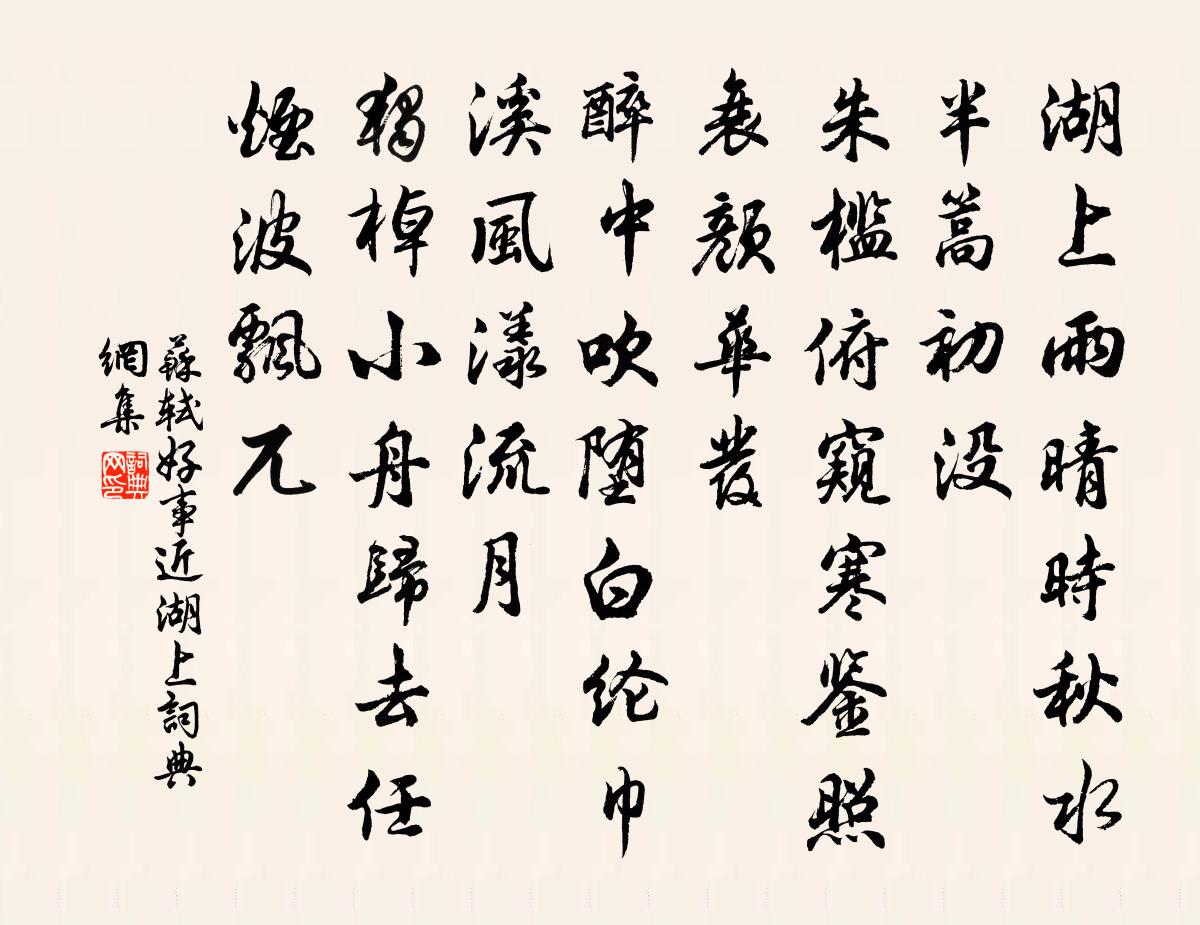 湖上雨晴時秋水
半篙初没
朱檻俯窺寒鉴照
衰顏華發
醉中吹堕白纶巾
溪風漾流月
獨棹小舟歸去任
煙波飄兀
蘇軾好事近湖上詞典
網集
詞典
网印